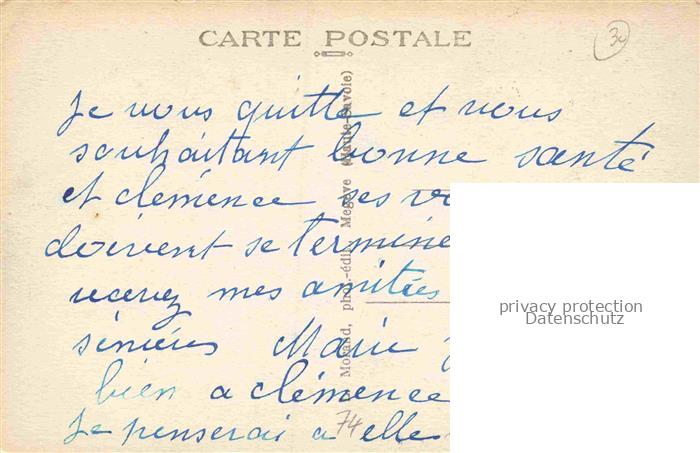 CARTE POSTALE
30
Je vous quitte et vous
souhaitant bonne santé
et clémence ses
doivent se termine
recevez mes amitiées
Marie
bien a clémence
Je penserai a elle
Morand, phot-édit. Megève (Haute-Savoie)
74
privacy protection
Datenschutz